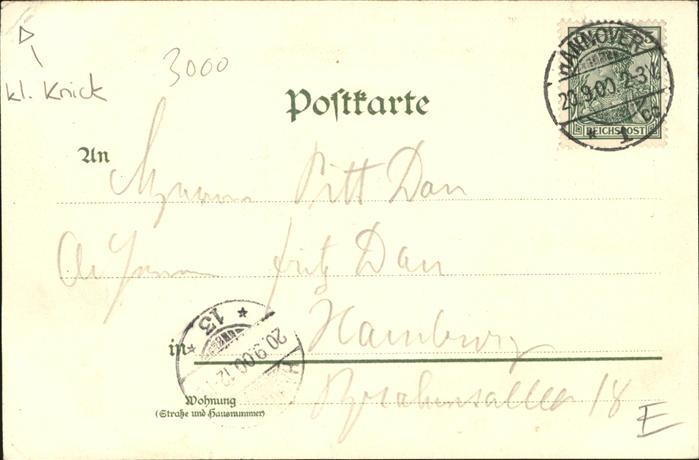 kl. Knick
3000
Postkarte
HANNOVER
20.9.00. 2-3N
* 1 cc
REICHSPOST
An
Pitt Dan
Fritz Dan
Hamburg
* 13
20.9.00.12
in
18
Wohnung
(Straße und Hausnummer)
E